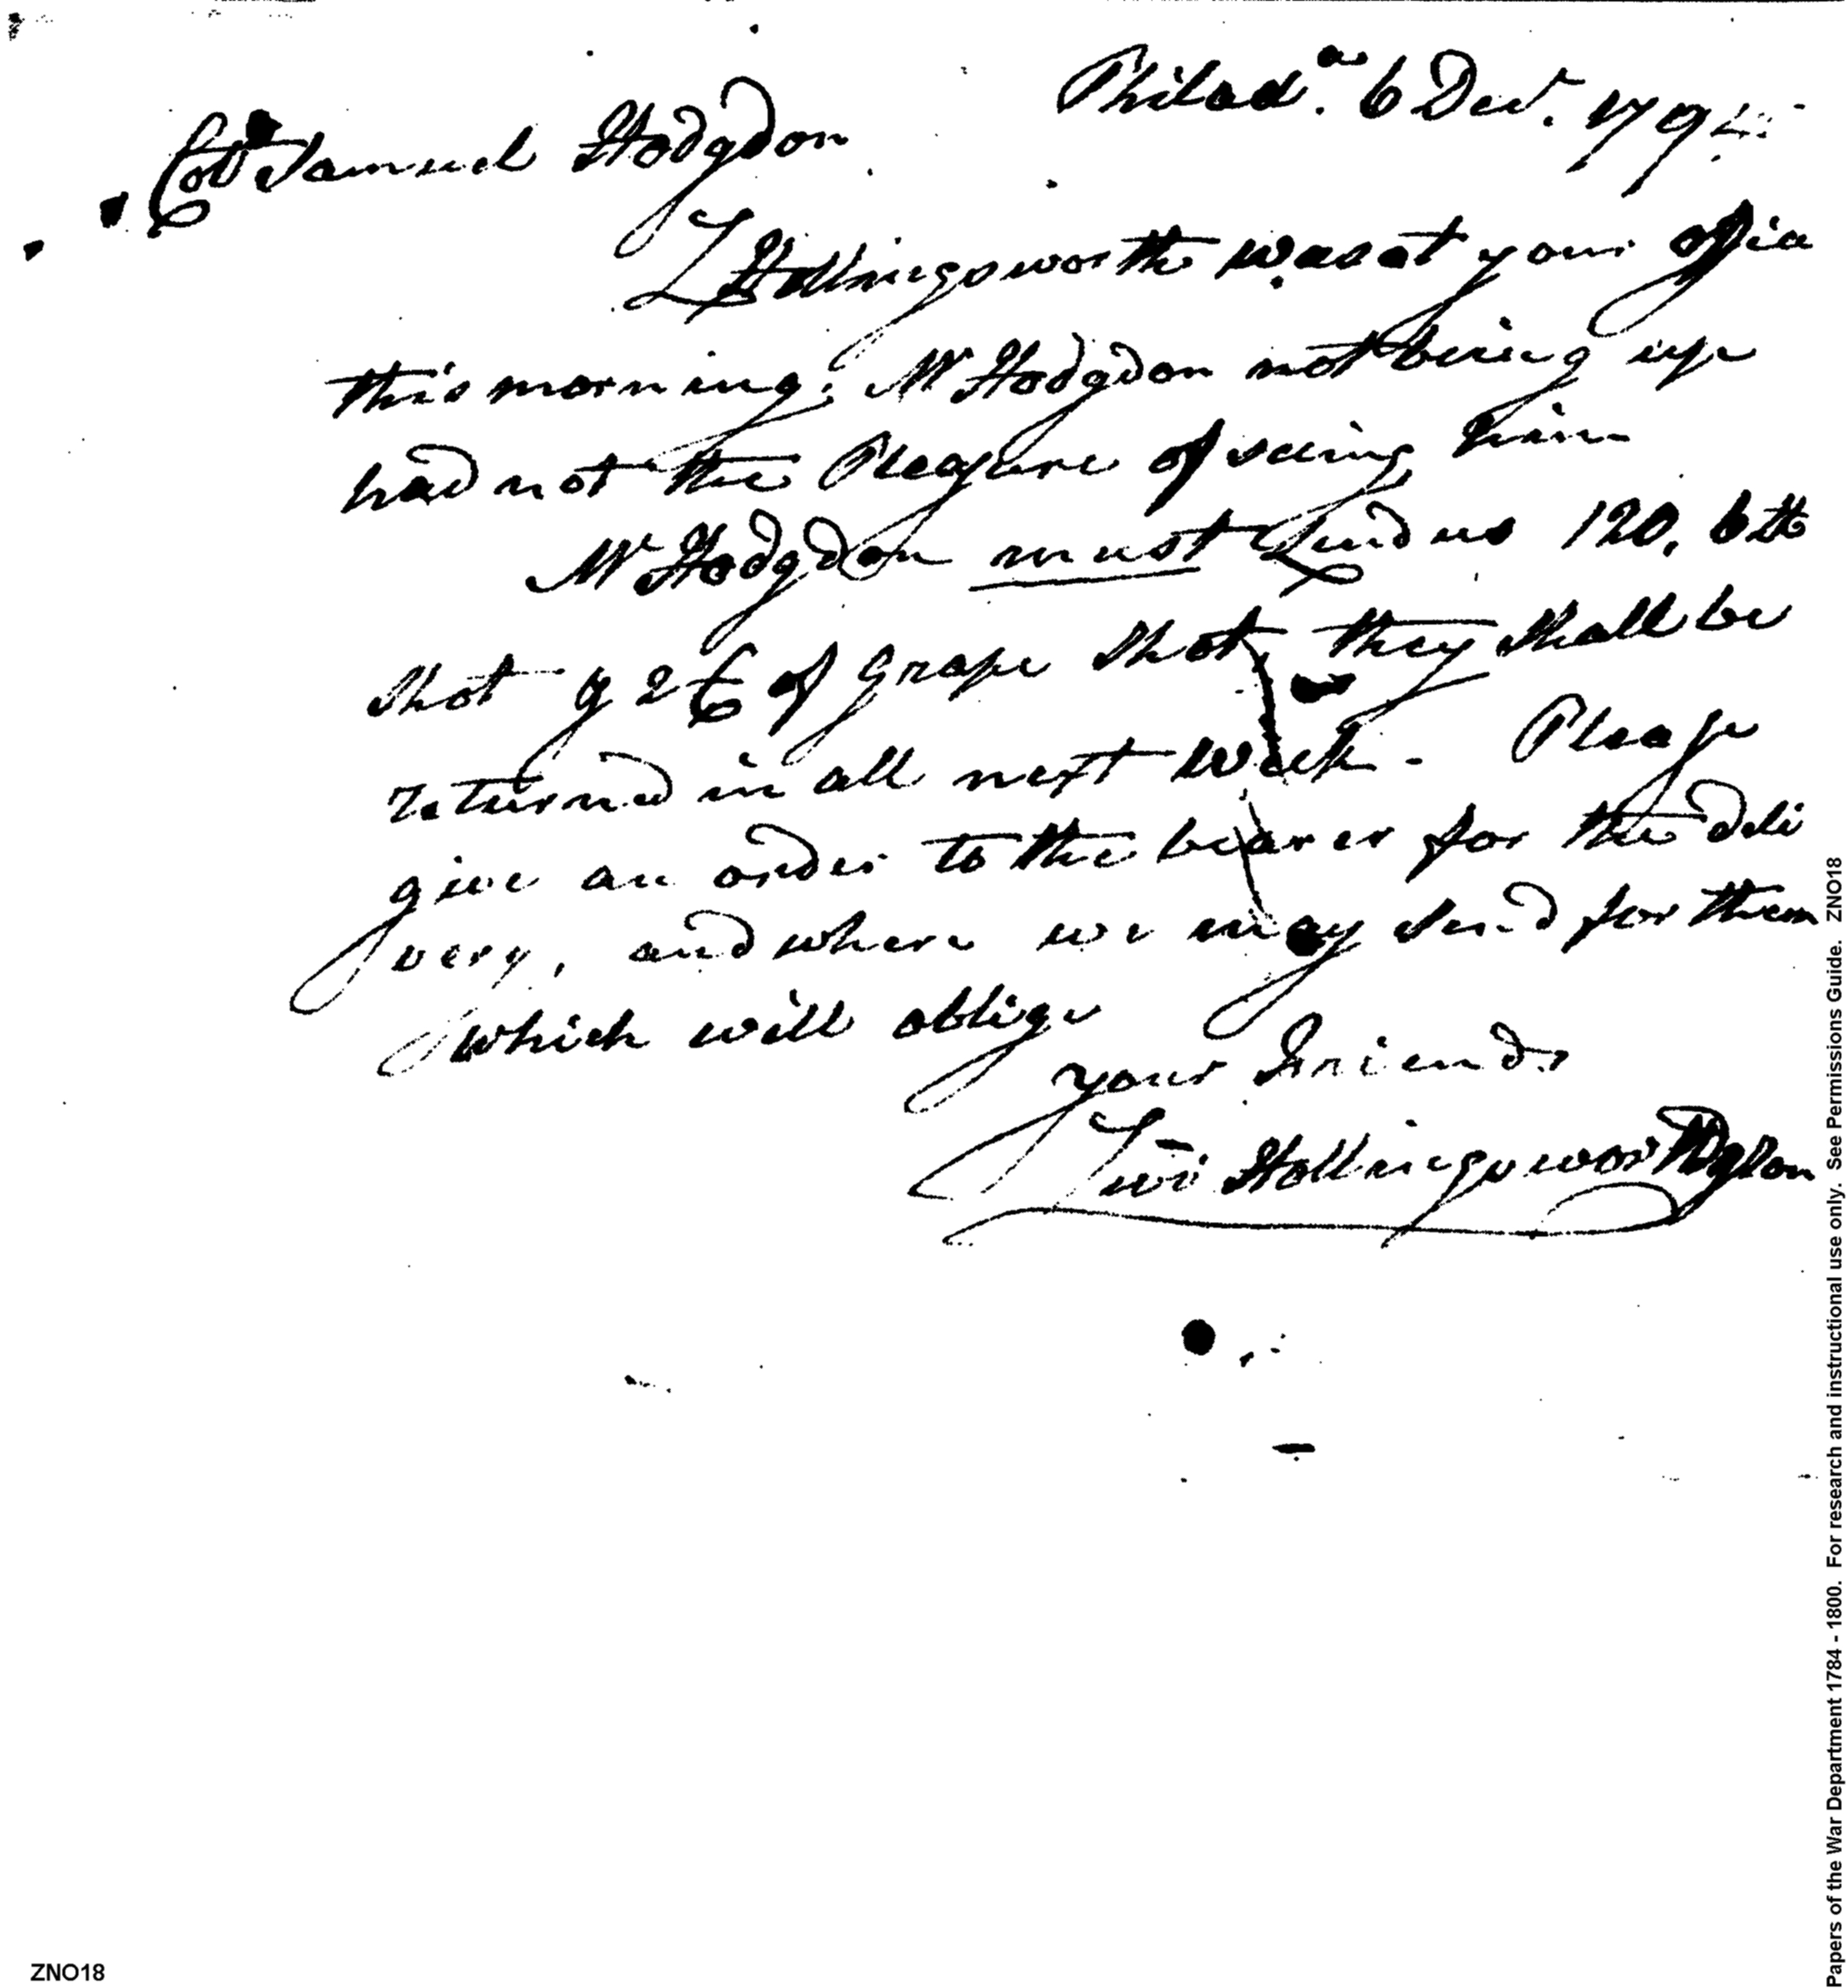 Philad.a 6 Decr. 179
Col Samuel Hodgdon
L Hollingsworth was at your office
this morning. Mr Hodgdon not being up
had not the Pleasure of seeing him
Mr Hodgdon must lend us 120. 6 lb
shot & 2 C of grape shot they shall be
returned in all next Week. Please
give an order to the bearer for the deli
very, and where we may send for them
which will oblige
your Friends
Levi Hollingsworth & Son
Papers of the War Department 1784 - 1800. For research and instructional use only. See Permissions Guide. ZNO18
ZNO18